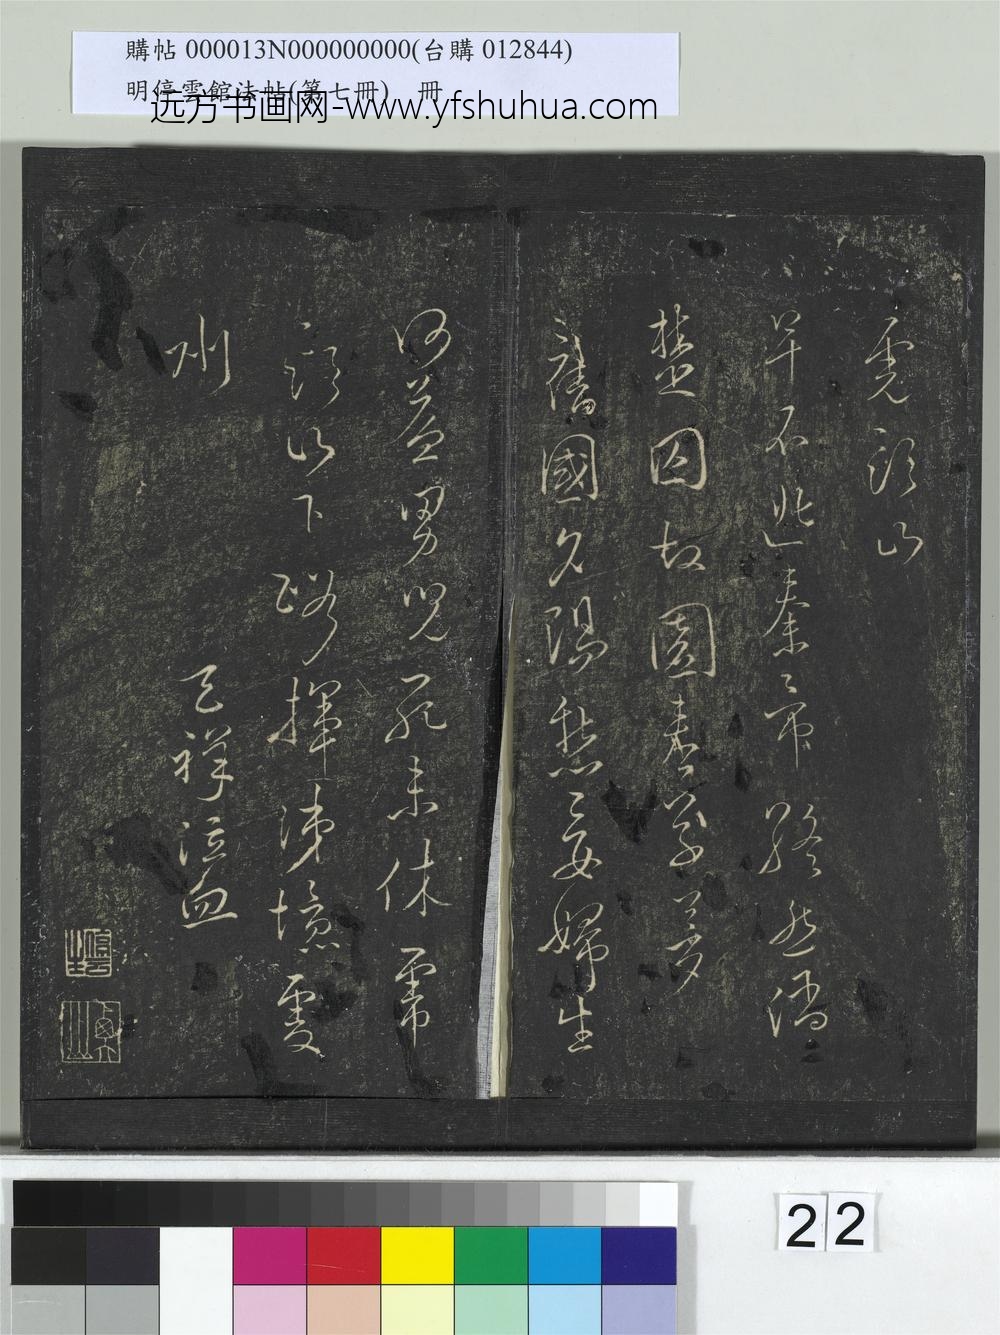 購帖 000013N000000000(台購 012844)
明停雲館法帖(第七冊) 冊
远方书画网-www.yfshuhua.com
虎頭山
早不逃秦帝終然陷
楚囚故園春草夢
舊國夕陽愁妾婦生
何益男兒死未休虎
頭山下路揮涕憶虔
州
天祥泣血
22